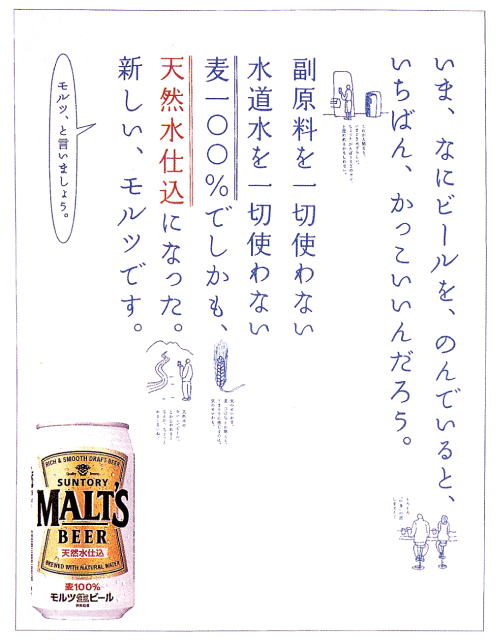 いま、なにビールを、のんでいると、
いちばん、かっこいいんだろう。
副原料を一切使わない
水道水を一切使わない
麦一〇〇%でしかも、
天然水仕込になった。
新しい、モルツです。
モルツ、と言いましょう。
RICH & SMOOTH DRAFT BEER
SUNTORY
MALT'S
BEER
天然水仕込
BREWED WITH NATURAL WATER
麦100%
モルツ
ビール